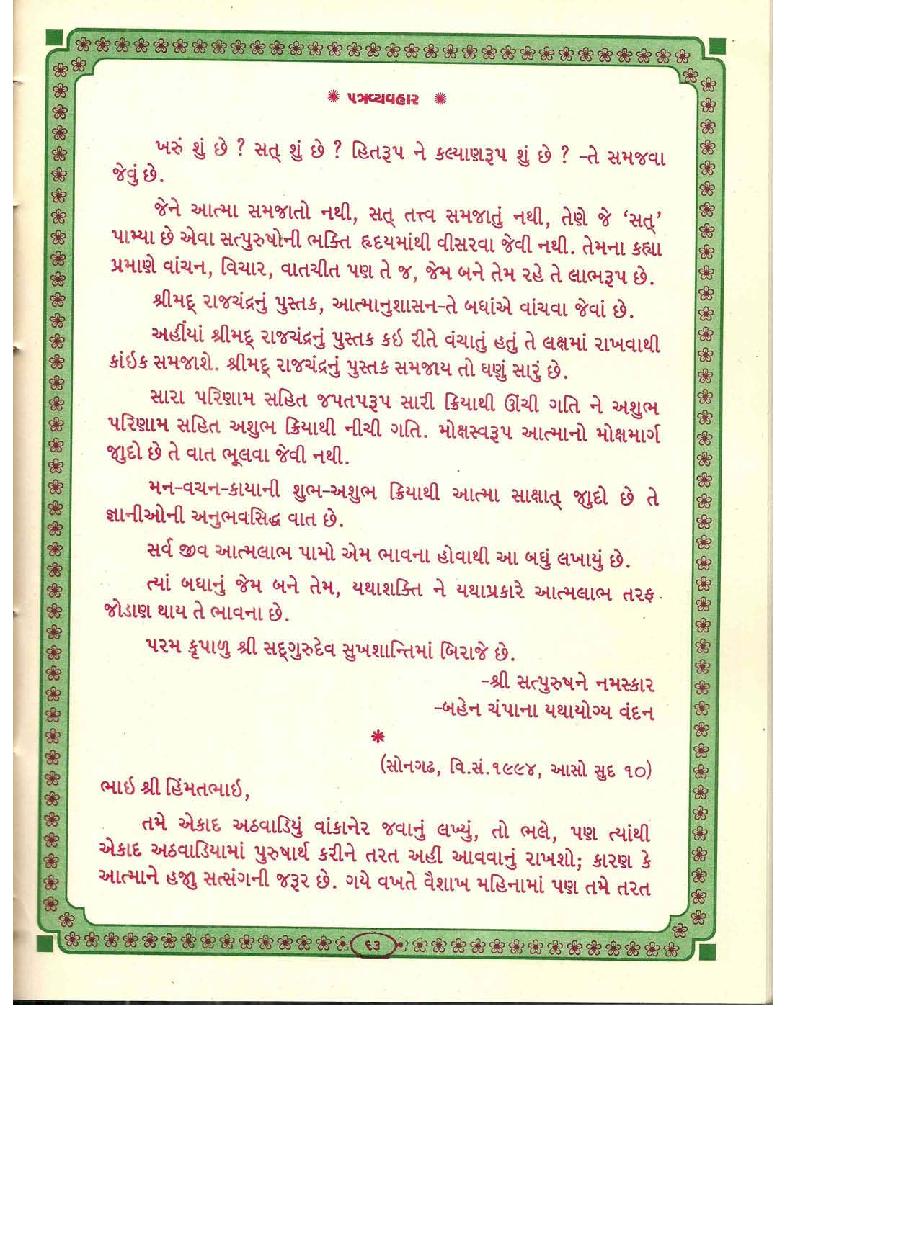 પત્રવ્યવહાર
ખરું શું છે ? સત્ શું છે ? હિતરૂપ ને કલ્યાણરૂપ શું છે ? -તે સમજવા
જેવું છે.
જેને આત્મા સમજાતો નથી, સત્ તત્ત્વ સમજાતું નથી, તેણે જે ‘સત્’
પામ્યા છે એવા સત્પુરુષોની ભક્તિ હૃદયમાંથી વીસરવા જેવી નથી. તેમના કહ્યા
પ્રમાણે વાંચન, વિચાર, વાતચીત પણ તે જ, જેમ બને તેમ રહે તે લાભરૂપ છે.
શ્રીમદ્ રાજચંદ્રનું પુસ્તક, આત્માનુશાસન-તે બધાંએ વાંચવા જેવાં છે.
અહીંયાં શ્રીમદ્ રાજચંદ્રનું પુસ્તક કઇ રીતે વંચાતું હતું તે લક્ષમાં રાખવાથી
કાંઇક સમજાશે. શ્રીમદ્ રાજચંદ્રનું પુસ્તક સમજાય તો ઘણું સારું છે.
સારા પરિણામ સહિત જપતપરૂપ સારી ક્રિયાથી ઊંચી ગતિ ને અશુભ
પરિણામ સહિત અશુભ ક્રિયાથી નીચી ગતિ. મોક્ષસ્વરૂપ આત્માનો મોક્ષમાર્ગ
જુદો છે તે વાત ભૂલવા જેવી નથી.
મન-વચન-કાયાની શુભ-અશુભ ક્રિયાથી આત્મા સાક્ષાત્ જુદો છે તે
જ્ઞાનીઓની અનુભવસિદ્ધ વાત છે.
સર્વ જીવ આત્મલાભ પામો એમ ભાવના હોવાથી આ બધું લખાયું છે.
ત્યાં બધાનું જેમ બને તેમ, યથાશક્તિ ને યથાપ્રકારે આત્મલાભ તરફ
જોડાણ થાય તે ભાવના છે.
પરમ કૃપાળુ શ્રી સદ્‌ગુરુદેવ સુખશાન્તિમાં બિરાજે છે.
-શ્રી સત્પુરુષને નમસ્કાર
-બહેન ચંપાના યથાયોગ્ય વંદન
(સોનગઢ, વિ.સં.૧૯૯૪, આસો સુદ ૧૦)
ભાઇ શ્રી હિંમતભાઇ,
તમે એકાદ અઠવાડિયું વાંકાનેર જવાનું લખ્યું, તો ભલે, પણ ત્યાંથી
એકાદ અઠવાડિયામાં પુરુષાર્થ કરીને તરત અહીં આવવાનું રાખશો; કારણ કે
આત્માને હજુ સત્સંગની જરૂર છે. ગયે વખતે વૈશાખ મહિનામાં પણ તમે તરત
૬૩